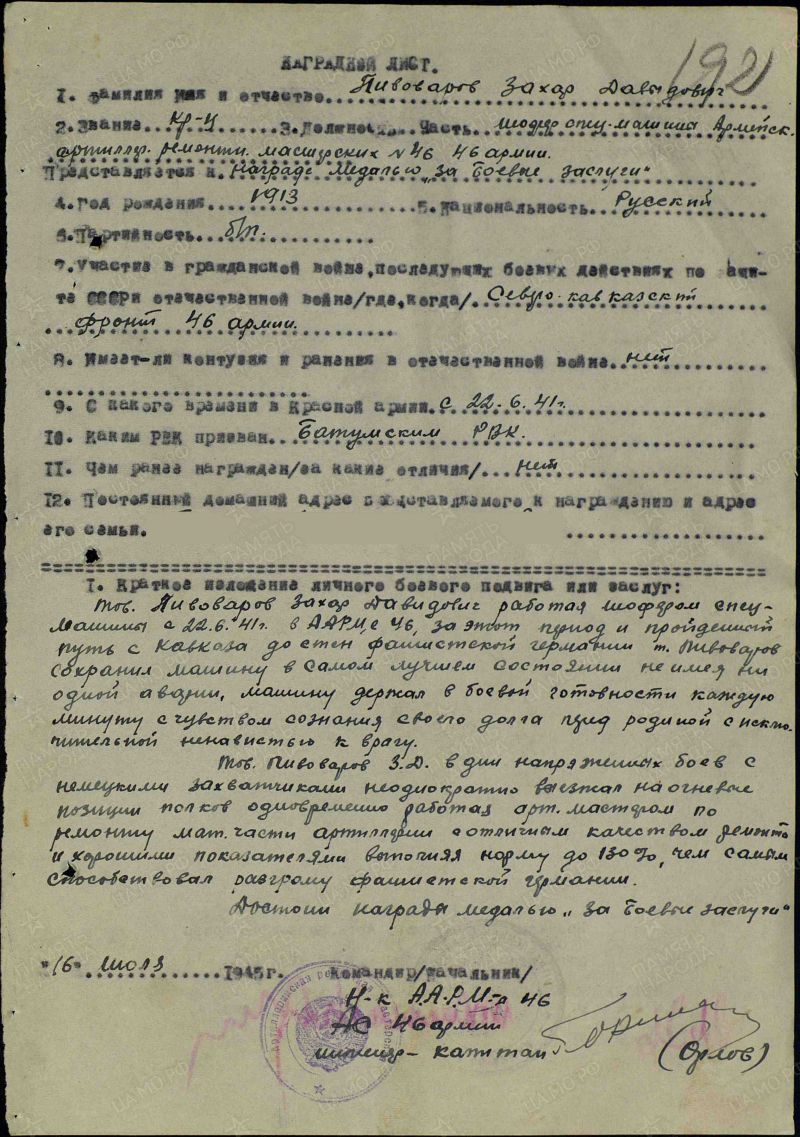 192
НАГРАДНОЙ ЛИСТ.
1. Фамилия имя и отчество Пивоваров Захар Давыдович
2. Звание Кр-ц 3. Должность, часть шофер спец-машины Армейск.
артиллер. ремонтн. мастерских №46 46 армии.
Представляется к Награде Медалью „За боевые заслуги"
4. Год рождения 1913 5. Национальность Русский
6. Партийность б/п.
7. Участие в гражданской войне, последующих боевых действиях по защи-
те СССР и отечественной войне/где, когда/ Северо-кавказский
фронт 46 армии.
8. Имеет-ли контузия и ранения в отечественной войне нет
9. С какого времени в Красной армии с 22.6.41г.
10. Каким РВК призван Батумским РВК.
11. Чем ранее награжден/за какие отличия/ нет
12. Постоянный домашний адрес представляемого к награждению и адрес
его семьи.
1. Краткое изложение личного боевого подвига или заслуг:
Тов. Пивоваров Захар Давидович работая шофером спец-
машины с 22.6.41г. в ААРМ с 46, за этот период и пройденный
путь с Кавказа до стен фашистской германии т. Пивоваров
сохранил машину в самом лучшем состоянии не имея ни
одной аварии, машину держал в боевой готовности каждую
минуту с чувством сознания своего долга пред родиной с исклю-
чительной ненавистью к врагу.
Тов. Пивоваров З.Д. в дни напряженных боев с
немецкими захватчиками неоднократно выезжал на огневые
позиции полков одновременно работая арт. мастером по
ремонту мат. части артиллерии с отличным качеством ремонта
и хорошими показателями выполняя норму до 130%, чем самым
способствовал разгрому фашистской германии.
Достоин награды медалью „За боевые заслуги"
"16" июля 1945г. Командир/начальник/
Н-к А.А.Р.М-а 46
АС 46 армии
инженер-капитан (Орлов)